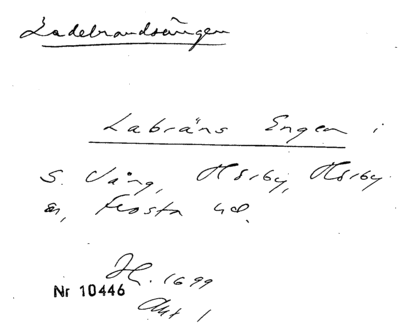 Ladebrandsängen
Labräns Engen i
S. Vång, Hörby, Hörby
sn, Frosta hd.
Jh. 1699
Nr 10446
Akt 1